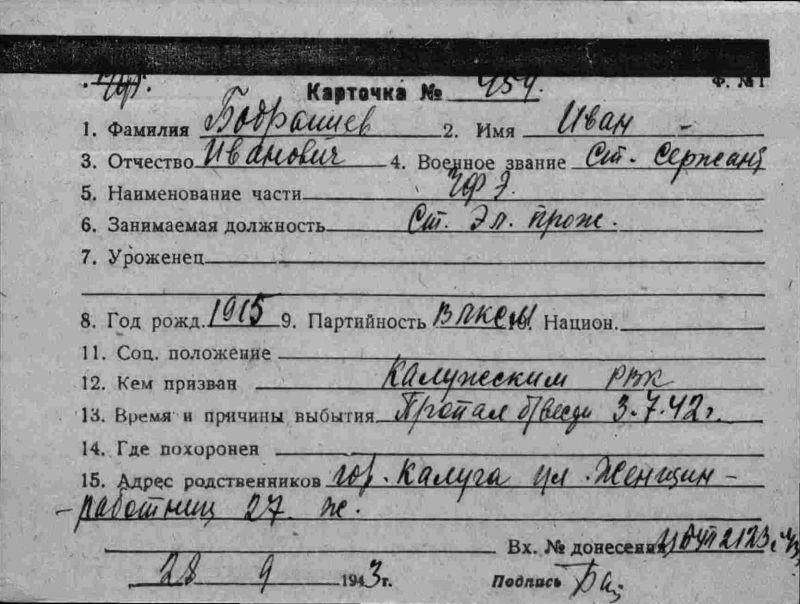 ЧФ.
Карточка № 459. Ф. №1
1. Фамилия 2. Имя Иван -
3. Отчество Иванович 4. Военное звание Ст. Сержант
5. Наименование части ЧФ
6. Занимаемая должность Ст. Эл. прож.
7. Уроженец
8. Год рожд. 1915 9. Партийность ВЛКСМ 10. Национ.
11. Соц. положение
12. Кем призван Калужским РВК
13. Время и причины выбытия Пропал б/вести 3.7.42г.
14. Где похоронен
15. Адрес родственников гор. Калуга ул. Женщин-
-работниц 27 ж.
Вх. № донесения
28 9 1943г. Подпись